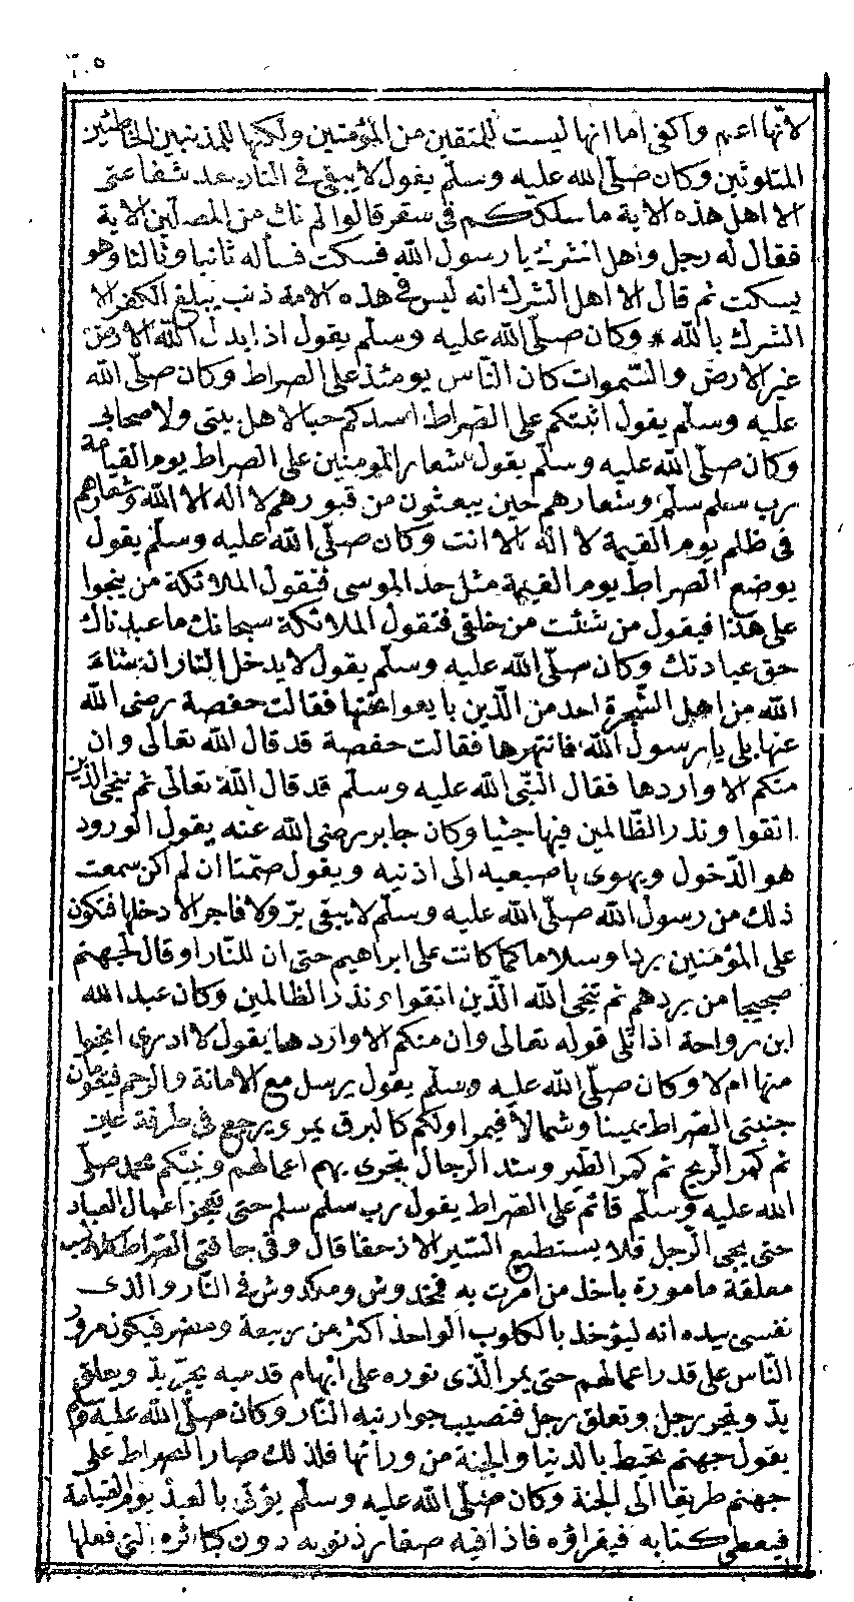 ٢٠٥
لانها اعم واكفى اما انها ليست للمتقين من المؤمنين ولكنها للمذنبين الخاطئين
المتلوثين وكان صلّى الله عليه وسلّم يقول لا يبقى فى النار بعد شفاعتى
الا اهل هذه الاية ما سلككم فى سقر قالوا لم نك من المصلين الاية
فقال له رجل واهل الشرك يا رسول الله فسكت فسأله ثانيا وثالثا وهو
يسكت ثم قال الا اهل الشرك انه ليس فى هذه الامة ذنب يبلغ الكفر الا
الشرك بالله * وكان صلّى الله عليه وسلّم يقول اذا بدل الله الارض
غير الارض والسّموات كان النّاس يومئذ على الصراط وكان صلّى الله
عليه وسلّم يقول اثبتكم على الصّراط اشدكم حبا لاهل بيتى ولاصحابى
وكان صلّى الله عليه وسلّم يقول شعار المؤمنين على الصراط يوم القيامة
رب سلم سلّم وشعارهم حين يبعثون من قبورهم لا اله الا الله وشعارهم
فى ظلم يوم القيمة لا اله الا انت وكان صلّى الله عليه وسلّم يقول
يوضع الصراط يوم القيمة مثل حد الموسى فتقول الملائكة من ينجوا
على هذا فيقول من شئت من خلقى فتقول الملائكة سبحانك ما عبدناك
حق عبادتك وكان صلّى الله عليه وسلّم يقول لا يدخل النار ان شاء
الله من اهل الشّجرة احد من الّذين بايعوا تحتها فقالت حفصة رضى الله
عنها بلى يا رسول الله فانتهرها فقالت حفصة قد قال الله تعالى وان
منكم الا واردها فقال النّبى الله عليه وسلّم قد قال الله تعالى ثم ننجى الذين
اتقوا ونذر الظّالمين فيها جثيا وكان جابر رضى الله عنه يقول الورود
هو الدّخول ويهوى باصبعيه الى اذنيه ويقول صمّتا ان لم اكن سمعت
ذلك من رسول الله صلّى الله عليه وسلّم لا يبقى برّ ولا فاجر الا دخلها فتكون
على المؤمنين بردا وسلاما كما كانت على ابراهيم حتى ان للنّار او قال لجهنم
ضجيجا من بردهم ثم ننجى الله الّذين اتقوا ونذر الظالمين وكان عبد الله
ابن رواحة اذا تلى قوله تعالى وان منكم الا واردها يقول لا ادرى انجوا
منها ام لا وكان صلّى الله عليه وسلّم يقول يرسل مع الامانة والرحم فيقومان
جنبتى الصّراط يمينا وشمالا فيمر اولكم كالبرق يمر ويرجع فى طرفة عين
ثم كمر الريح ثم كمر الطّير وشد الرجال تجرى بهم اعمالهم ونبيّكم محمد صلّى
الله عليه وسلّم قائم على الصّراط يقول رب سلم سلم حتى تعجز اعمال العباد
حتى يجى الرجل فلا يستطيع السّير الا زحفا قال وفى حافتى الصّراط كلاليب
معلقة مامورة باخذ من امرت به فمخدوش ومكدوش فى النّار والذى
نفسى بيده انه ليؤخذ بالكلوب الواحد اكثر من ربيعة ومضر فيكون مرور
النّاس على قدر اعمالهم حتى يمر الّذى نوره على ابهام قدميه يجرّ يد ويعلق
يدّ ويجر رجل وتعلق رجل فتصيب جوارنبه النّار وكان صلّى الله عليه وسلّم
يقول جهنم تحيط بالدنيا والجنة من ورائها فلذلك صار الصّراط على
جهنم طريقا الى الجنة وكان صلّى الله عليه وسلّم يقول يؤتى بالعبد يوم القيامة
فيعطى كتابه فيقراؤه فاذا فيه صغار ذنوبه دون كبائره التى فعلها